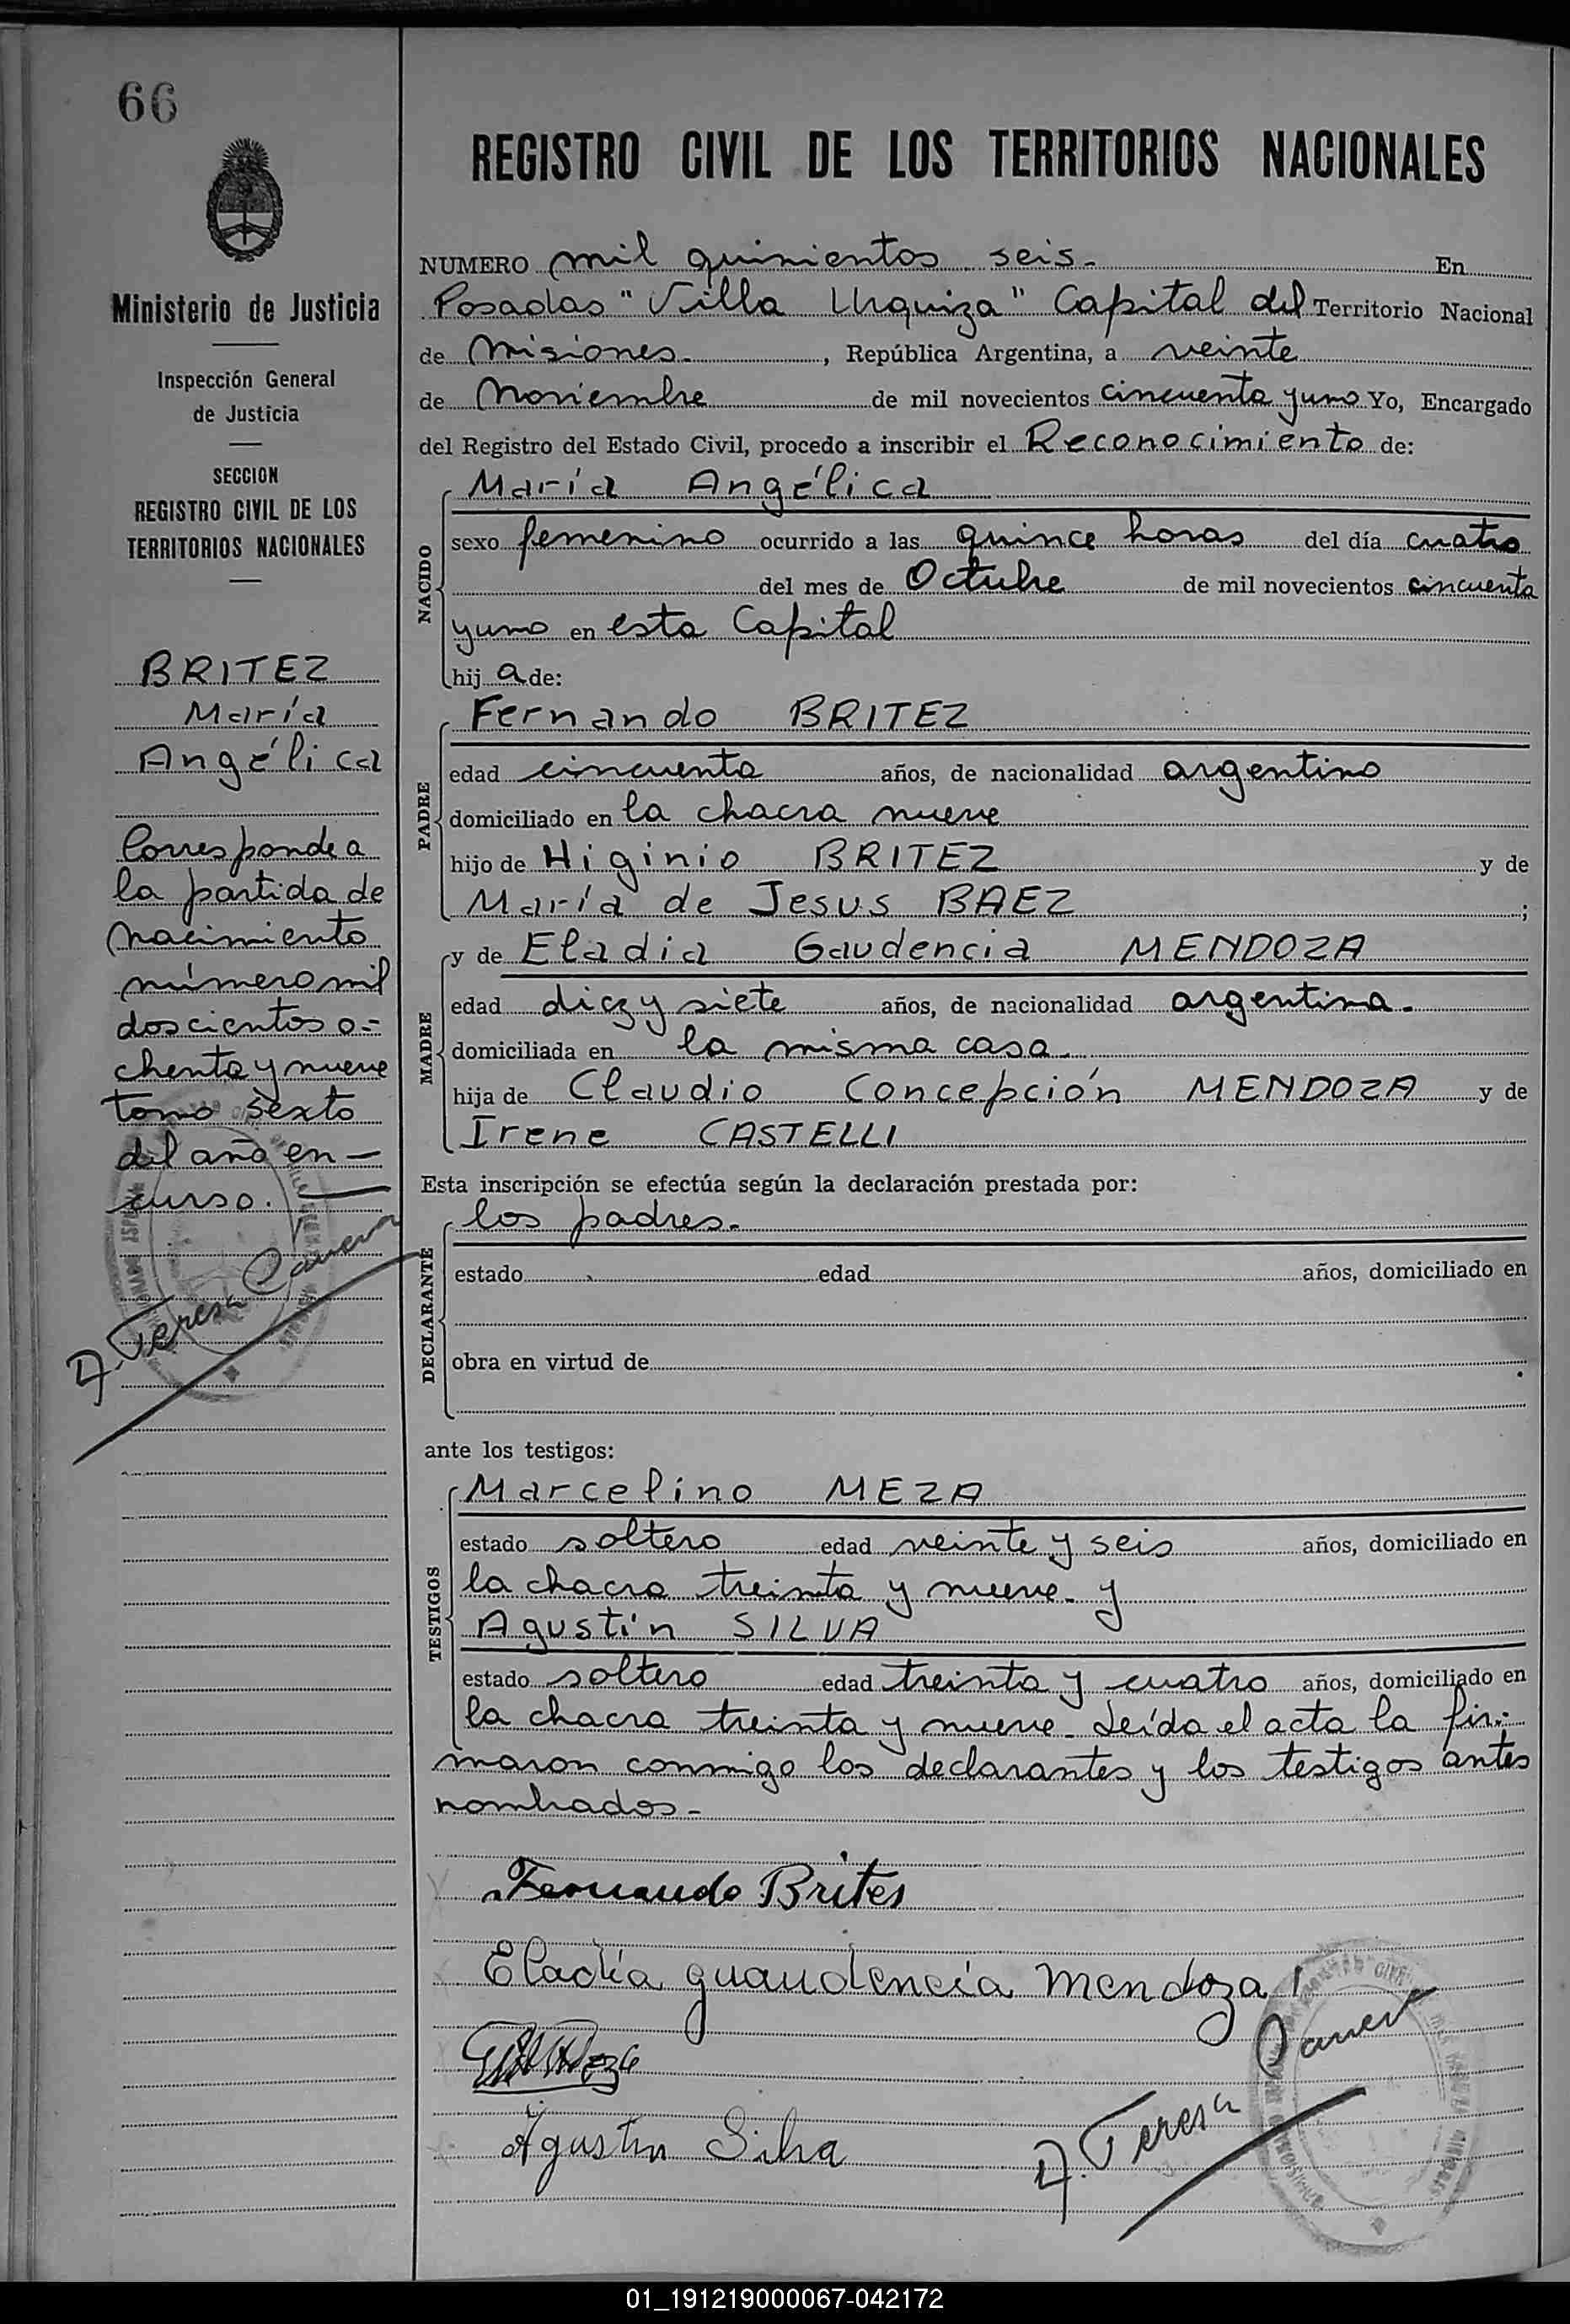 66
Ministerio de Justicia
Inspección General
de Justicia
SECCION
REGISTRO CIVIL DE LOS
TERRITORIOS NACIONALES
BRITEZ
María
Angélica
Corresponde a
la partida de
nacimiento
número mil
doscientos o=
chenta y nueve
tomo sexto
del año en—
curso.
A. Teresa
REGISTRO CIVIL DE LOS TERRITORIOS NACIONALES
NUMERO mil quinientos seis- En
Posadas "Villa Urquiza" Capital del Territorio Nacional
de Misiones-, República Argentina, a veinte
de Noviembre de mil novecientos cincuenta y uno Yo, Encargado
del Registro del Estado Civil, procedo a inscribir el Reconocimiento de:
NACIDO
María Angélica
sexo femenino ocurrido a las quince horas del día cuatro
del mes de Octubre de mil novecientos cincuenta
y uno en esta Capital
hij a de:
PADRE
Fernando BRITEZ
edad cincuenta años, de nacionalidad argentino
domiciliado en la chacra nueve
hijo de Higinio BRITEZ y de
María de Jesus BAEZ ;
MADRE
y de Eladia Gaudencia MENDOZA
edad diez y siete años, de nacionalidad argentina.
domiciliada en la misma casa.
hija de Claudio Concepción MENDOZA y de
Irene CASTELLI
Esta inscripción se efectúa según la declaración prestada por:
DECLARANTE
los padres.
estado edad años, domiciliado en
obra en virtud de
ante los testigos:
TESTIGOS
Marcelino MEZA
estado soltero edad veinte y seis años, domiciliado en
la chacra treinta y nueve- y
Agustín SILVA
estado soltero edad treinta y cuatro años, domiciliado en
la chacra treinta y nueve- Leída el acta la fir=
maron conmigo los declarantes y los testigos antes
nombrados-
Fernando Brites
Eladia guaudencia Mendoza
Agustin Silva
A. Teresa
01_191219000067-042172